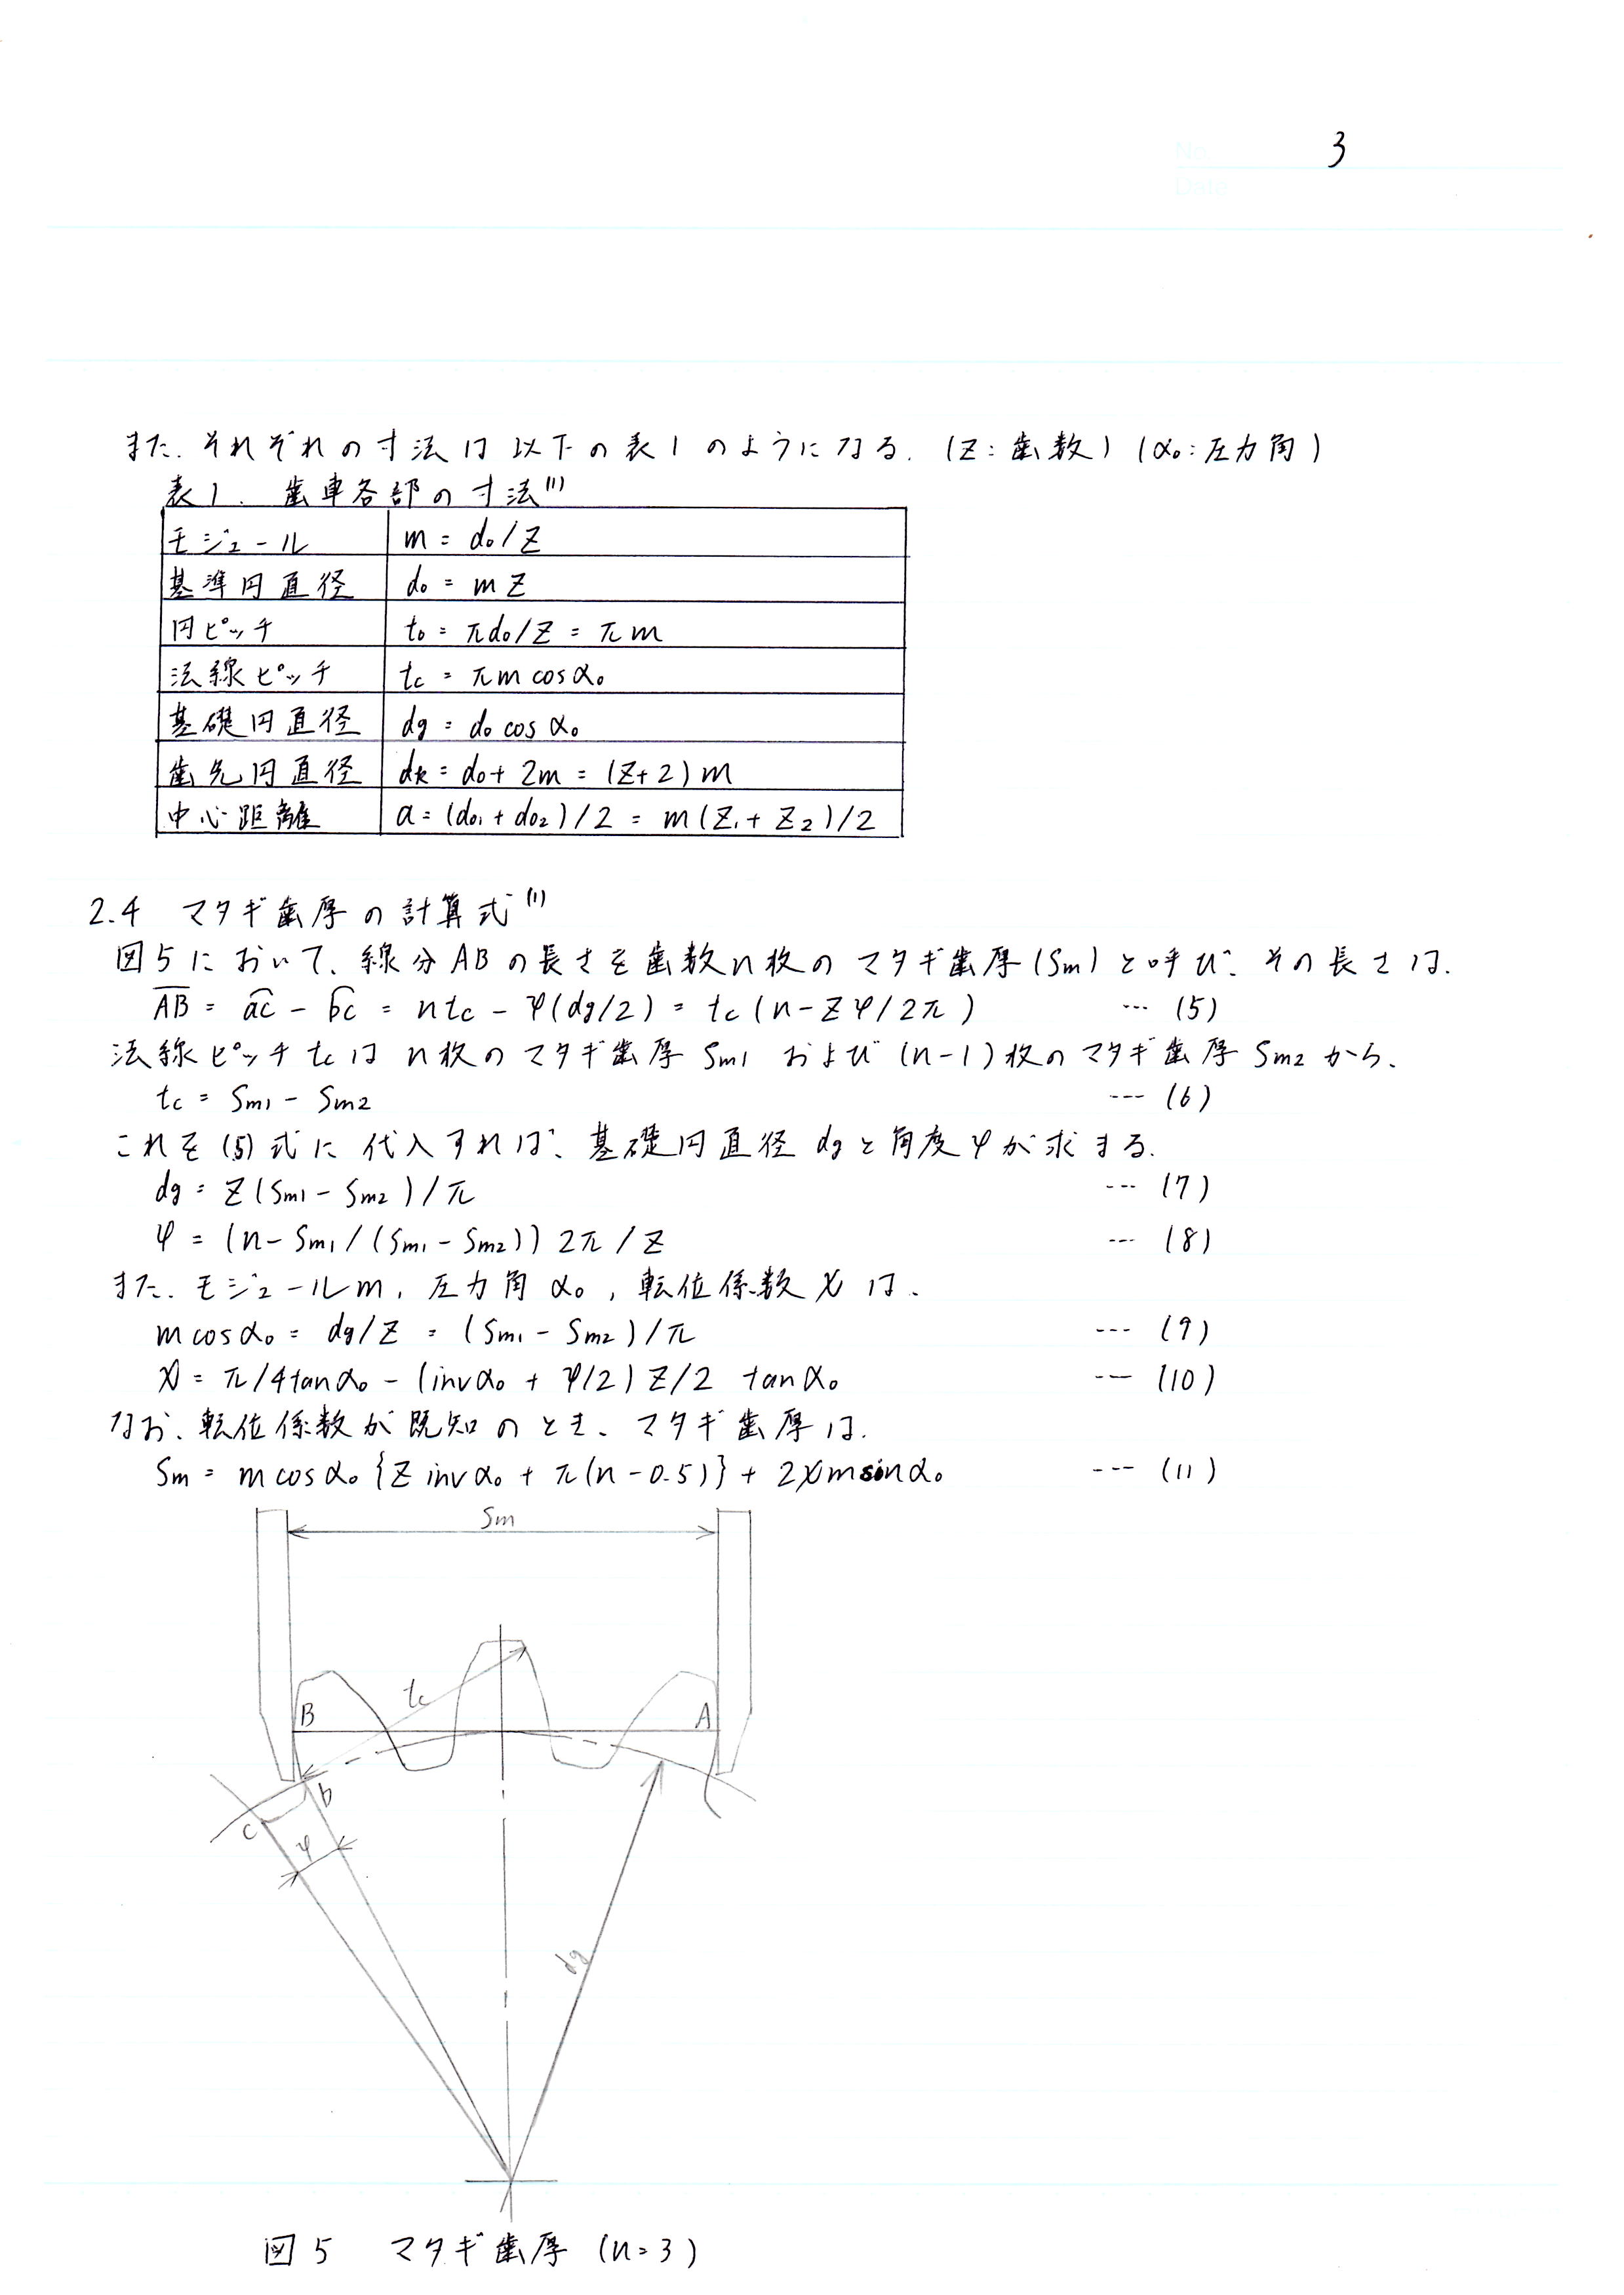 No.
3
Date
また、それぞれの寸法は以下の表1のようになる。(Z:歯数)(α₀:圧力角)
表1. 歯車各部の寸法⁽¹⁾
モジュール m = d₀/Z
基準円直径 d₀ = mZ
円ピッチ t₀ = πd₀/Z = πm
法線ピッチ tc = πm cosα₀
基礎円直径 dg = d₀ cosα₀
歯先円直径 dk = d₀ + 2m = (Z+2)m
中心距離 a = (d₀₁ + d₀₂)/2 = m(Z₁ + Z₂)/2
2.4 マタギ歯厚の計算式⁽¹⁾
図5において、線分ABの長さを歯数n枚のマタギ歯厚(Sm)と呼び、その長さは、
A͞B = a͡c - b͡c = ntc - φ(dg/2) = tc(n - Zφ/2π) --- (5)
法線ピッチtcはn枚のマタギ歯厚Sm1および(n-1)枚のマタギ歯厚Sm2から、
tc = Sm1 - Sm2 --- (6)
これを(5)式に代入すれば、基礎円直径dgと角度φが求まる。
dg = Z(Sm1 - Sm2)/π --- (7)
φ = (n - Sm1/(Sm1 - Sm2))2π/Z --- (8)
また、モジュールm, 圧力角α₀, 転位係数χは、
m cosα₀ = dg/Z = (Sm1 - Sm2)/π --- (9)
χ = π/4tanα₀ - (invα₀ + φ/2)Z/2 tanα₀ --- (10)
なお、転位係数が既知のとき、マタギ歯厚は、
Sm = m cosα₀{Z invα₀ + π(n - 0.5)} + 2χm sinα₀ --- (11)
Sm
tc
B
A
b
c
φ
dg
図5 マタギ歯厚 (n=3)